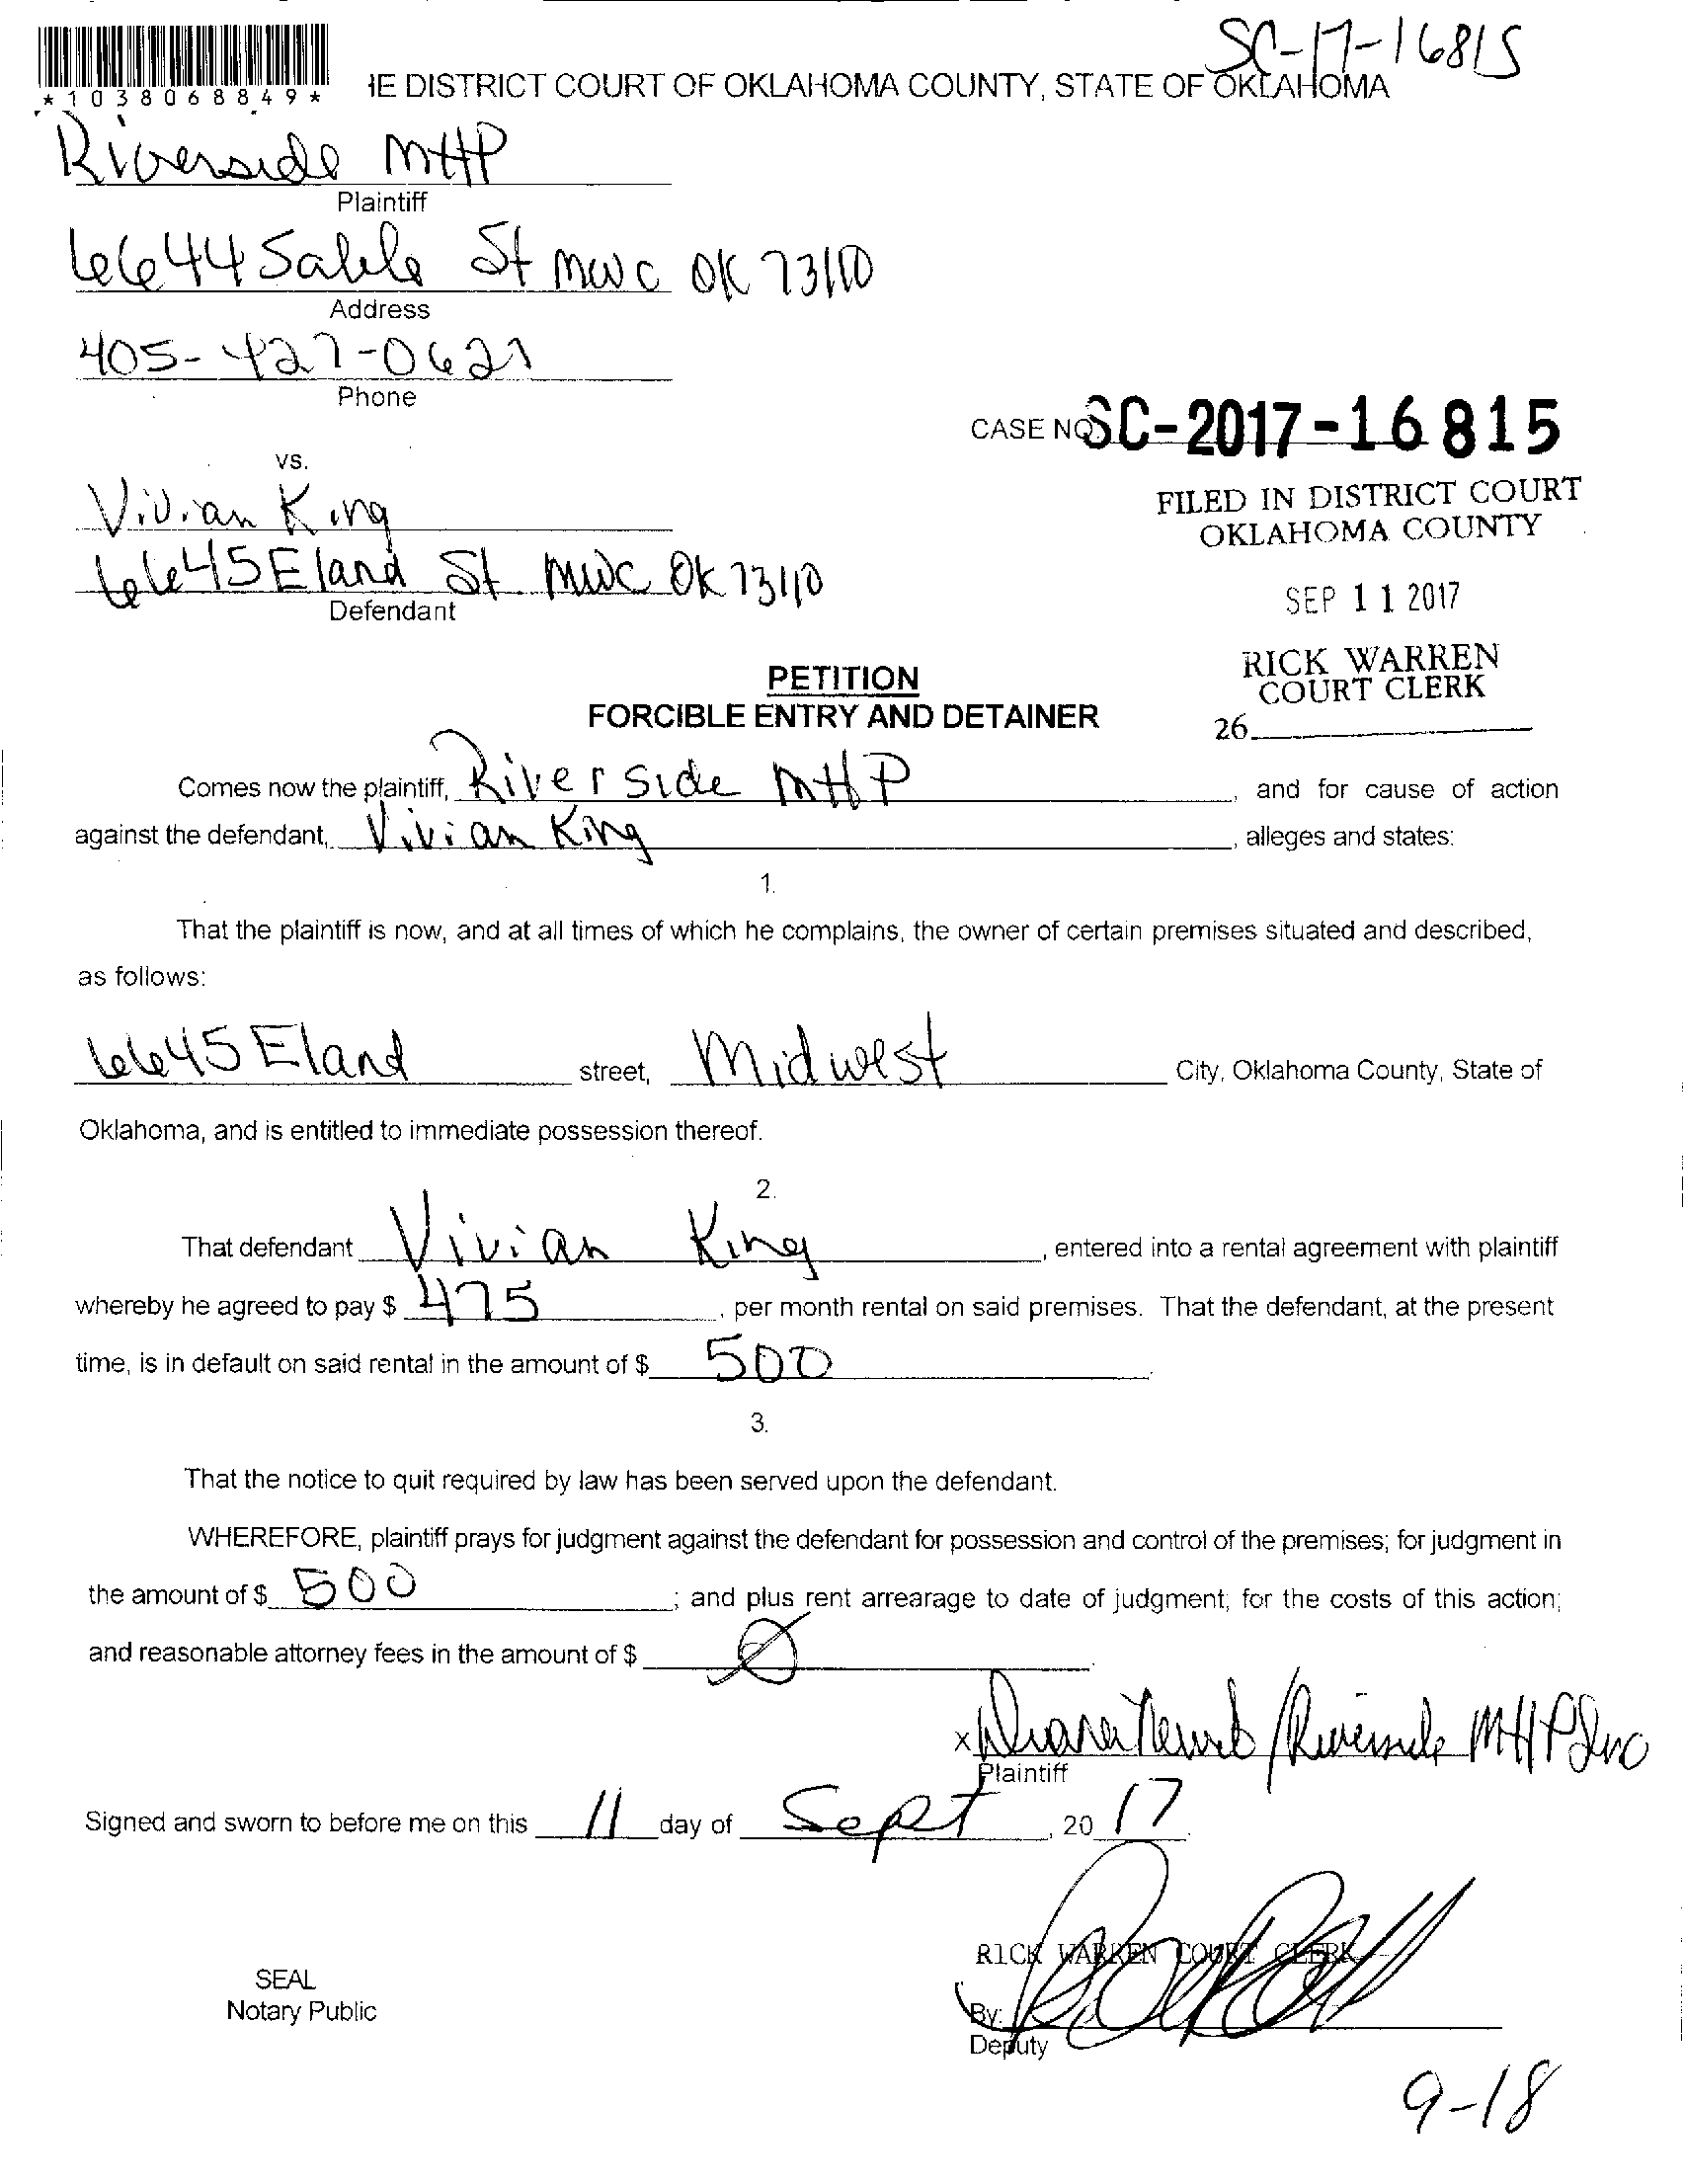 SC-17-16815
*1038068849*
IE DISTRICT COURT OF OKLAHOMA COUNTY, STATE OF OKLAHOMA
Riverside MHP
Plaintiff
6644 Sable St MWC OK 73110
Address
405-427-0621
Phone
CASE NO. SC-2017-16815
vs.
FILED IN DISTRICT COURT
OKLAHOMA COUNTY
Vivian King
6645 Eland St MWC OK 73110
Defendant
SEP 11 2017
RICK WARREN
COURT CLERK
26
PETITION
FORCIBLE ENTRY AND DETAINER
Comes now the plaintiff, Riverside MHP, and for cause of action
against the defendant, Vivian King, alleges and states:
1.
That the plaintiff is now, and at all times of which he complains, the owner of certain premises situated and described,
as follows:
6645 Eland street, Midwest City, Oklahoma County, State of
Oklahoma, and is entitled to immediate possession thereof.
2.
That defendant Vivian King, entered into a rental agreement with plaintiff
whereby he agreed to pay $ 475, per month rental on said premises. That the defendant, at the present
time, is in default on said rental in the amount of $ 500.
3.
That the notice to quit required by law has been served upon the defendant.
WHEREFORE, plaintiff prays for judgment against the defendant for possession and control of the premises; for judgment in
the amount of $ 500; and plus rent arrearage to date of judgment; for the costs of this action;
and reasonable attorney fees in the amount of $ Ø.
x / Riverside MHP Inc
Plaintiff
Signed and sworn to before me on this 11 day of Sept, 20 17.
RICK WARREN COURT CLERK
SEAL
Notary Public
By:
Deputy
9-18